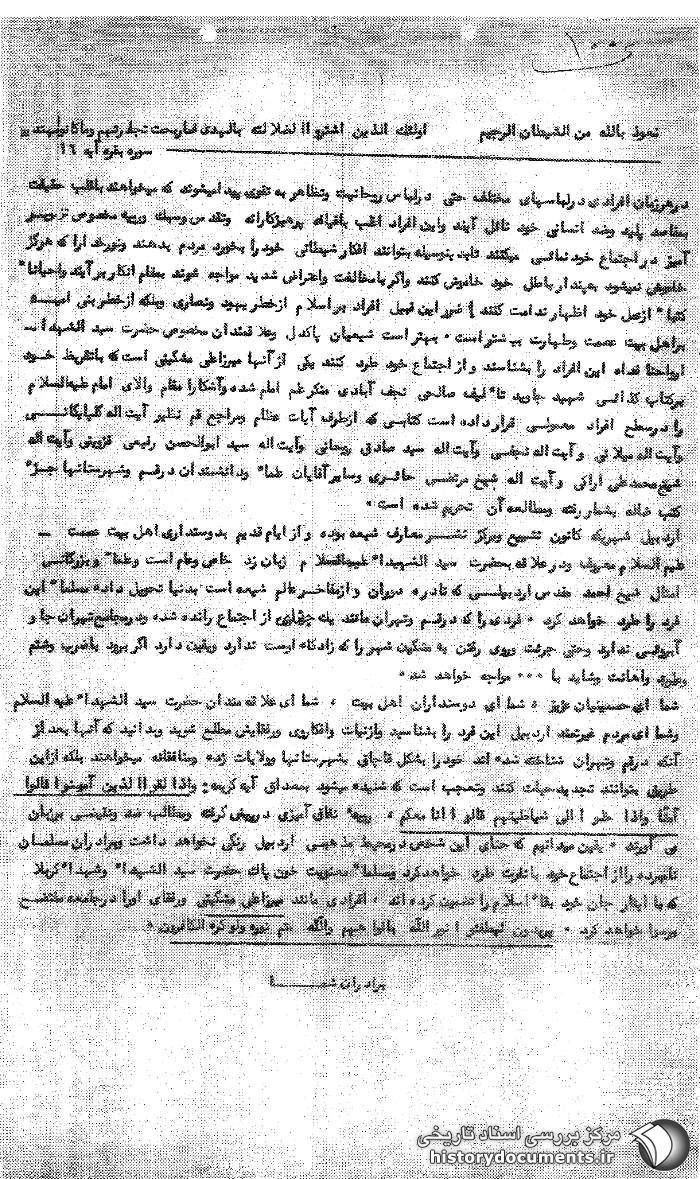 نعوذ بالله من الشیطان الرجیم اولئك الذین اشتروا الضلالة بالهدی فماربحت تجارتهم وماکانوا مهتدین
سوره بقره آیه ١٦
در هرزمان افرادی درلباسهای مختلفه حتی درلباس روحانیت وتظاهر به تقوی پیدامیشوند که میخواهند باقلب حقیقت
بمقاصد پلید وضد انسانی خود نائل آیند واین افراد اغلب باقیافه پرهیزکارانه وتقدس وسبك ورویه مخصوص تزویر
آمیز در اجتماع خودنمائی میکنند تابدینوسیله بتوانند افکار شیطانی خود را بخورد مردم بدهند ونورخدارا که هرگز
خاموش نمیشود بپندار باطل خود خاموش کنند واگر بامخالفت واعتراض شدید مواجه شوند بمقام انکار برآیند واحیانا"
کتبا" ازعمل خود اظهار ندامت کنند ضرر این قبیل افراد بر اسلام ازخطر یهود ونصاری وبلکه ازخطر بنی امیه
براهل بیت عصمت وطهارت بیشتر است ٠ بهتر است شیعیان پاکدل وعلاقمندان مخصوص حضرت سید الشهداء
ارواحنا فداه این افراد را بشناسند و از اجتماع خود طرد کنند یکی از آنها میرزاعلی مشگینی است که باتقریظ خود
برکتاب کذائی شهید جاوید تألیف صالحی نجف آبادی منکر علم امام شده وآشکارا مقام والای امام علیه السلام
را درسطح افراد معمولی قرار داده است کتابی که ازطرف آیات عظام ومراجع قم نظیر آیت اله گلپایگانی
وآیت اله میلانی و آیت اله نجفی وآیت اله سید صادق روحانی وآیت اله سید ابوالحسن رفیعی قزوینی وآیت اله
شیخ محمدعلی اراکی و آیت اله شیخ مرتضی حائری وسایر آقایان علما" ودانشمندان در قم وشهرستانها جزء
کتب ضاله بشمار رفته ومطالعه آن تحریم شده است ٠
اردبیل شهریکه کانون تشیع ومرکز نشر معارف شیعه بوده و از ایام قدیم بدوستداری اهل بیت عصمت
علیهم السلام معروف ودر علاقه بحضرت سید الشهداء علیه السلام زبان زد خاص وعام است وعلما" وبزرگانی
امثال شیخ احمد مقدس اردبیلی که نادره دوران و ازمفاخر عالم شیعه است بدنیا تحویل داده مسلما" این
فرد را طرد خواهد کرد ٠ فردی را که در قم وتهران مانند یك از اجتماع رانده شده ودرمجامع تهران جا و
آبروئی ندارد وحتی جرئت وروی رفتن به مشگین شهر را که زادگاه اوست ندارد ویقین دارد اگر برود باضرب وشتم
وطرد واهانت وشاید با ٠٠٠ مواجه خواهد شد ٠
شما ای حسینیان عزیز ٠ شما ای دوستداران اهل بیت ٠ شما ای علاقه مندان حضرت سید الشهداء علیه السلام
وشما ای مردم غیرتمند اردبیل این فرد را بشناسید وازنیات وافکار وی ورفقایش مطلع شوید وبدانید که آنها بعد از
آنکه در قم وتهران شناخته شده اند خود را بشکل قاچاقی بشهرستانها وولایات زده ومنافقانه میخواهند بلکه ازاین
طریق بتوانند تجدید حیات کنند وتعجب است که شنیده میشود بمصداق آیه کریمه : واذا لقوا الذین آمنوا قالوا
آمنا واذا خلوا الی شیاطینهم قالوا انا معکم ٠ رویه نفاق آمیزی درپیش گرفته ومطالب ضد ونقیضی بر زبان
می آورند ٠ یقین میدانیم که حنای این شخص درمحیط مذهبی اردبیل رنگی نخواهد داشت وبرادران مسلمان
نامبرده را از اجتماع خود بانفرت طرد خواهدکرد ومسلما" معنویت خون پاك حضرت سید الشهداء وشهداء کربلا
که با ایثار جان خود بقاء اسلام را تضمین کرده اند ٠ افرادی مانند میرزاعلی مشگینی ورفقای اورا درجامعه مفتضح
ورسوا خواهد کرد ٠ یریدون لیطفئوا نور الله بافواههم والله متم نوره ولو کره الکافرون ٠
برادران شما
مرکز بررسی اسناد تاریخی
historydocuments.ir